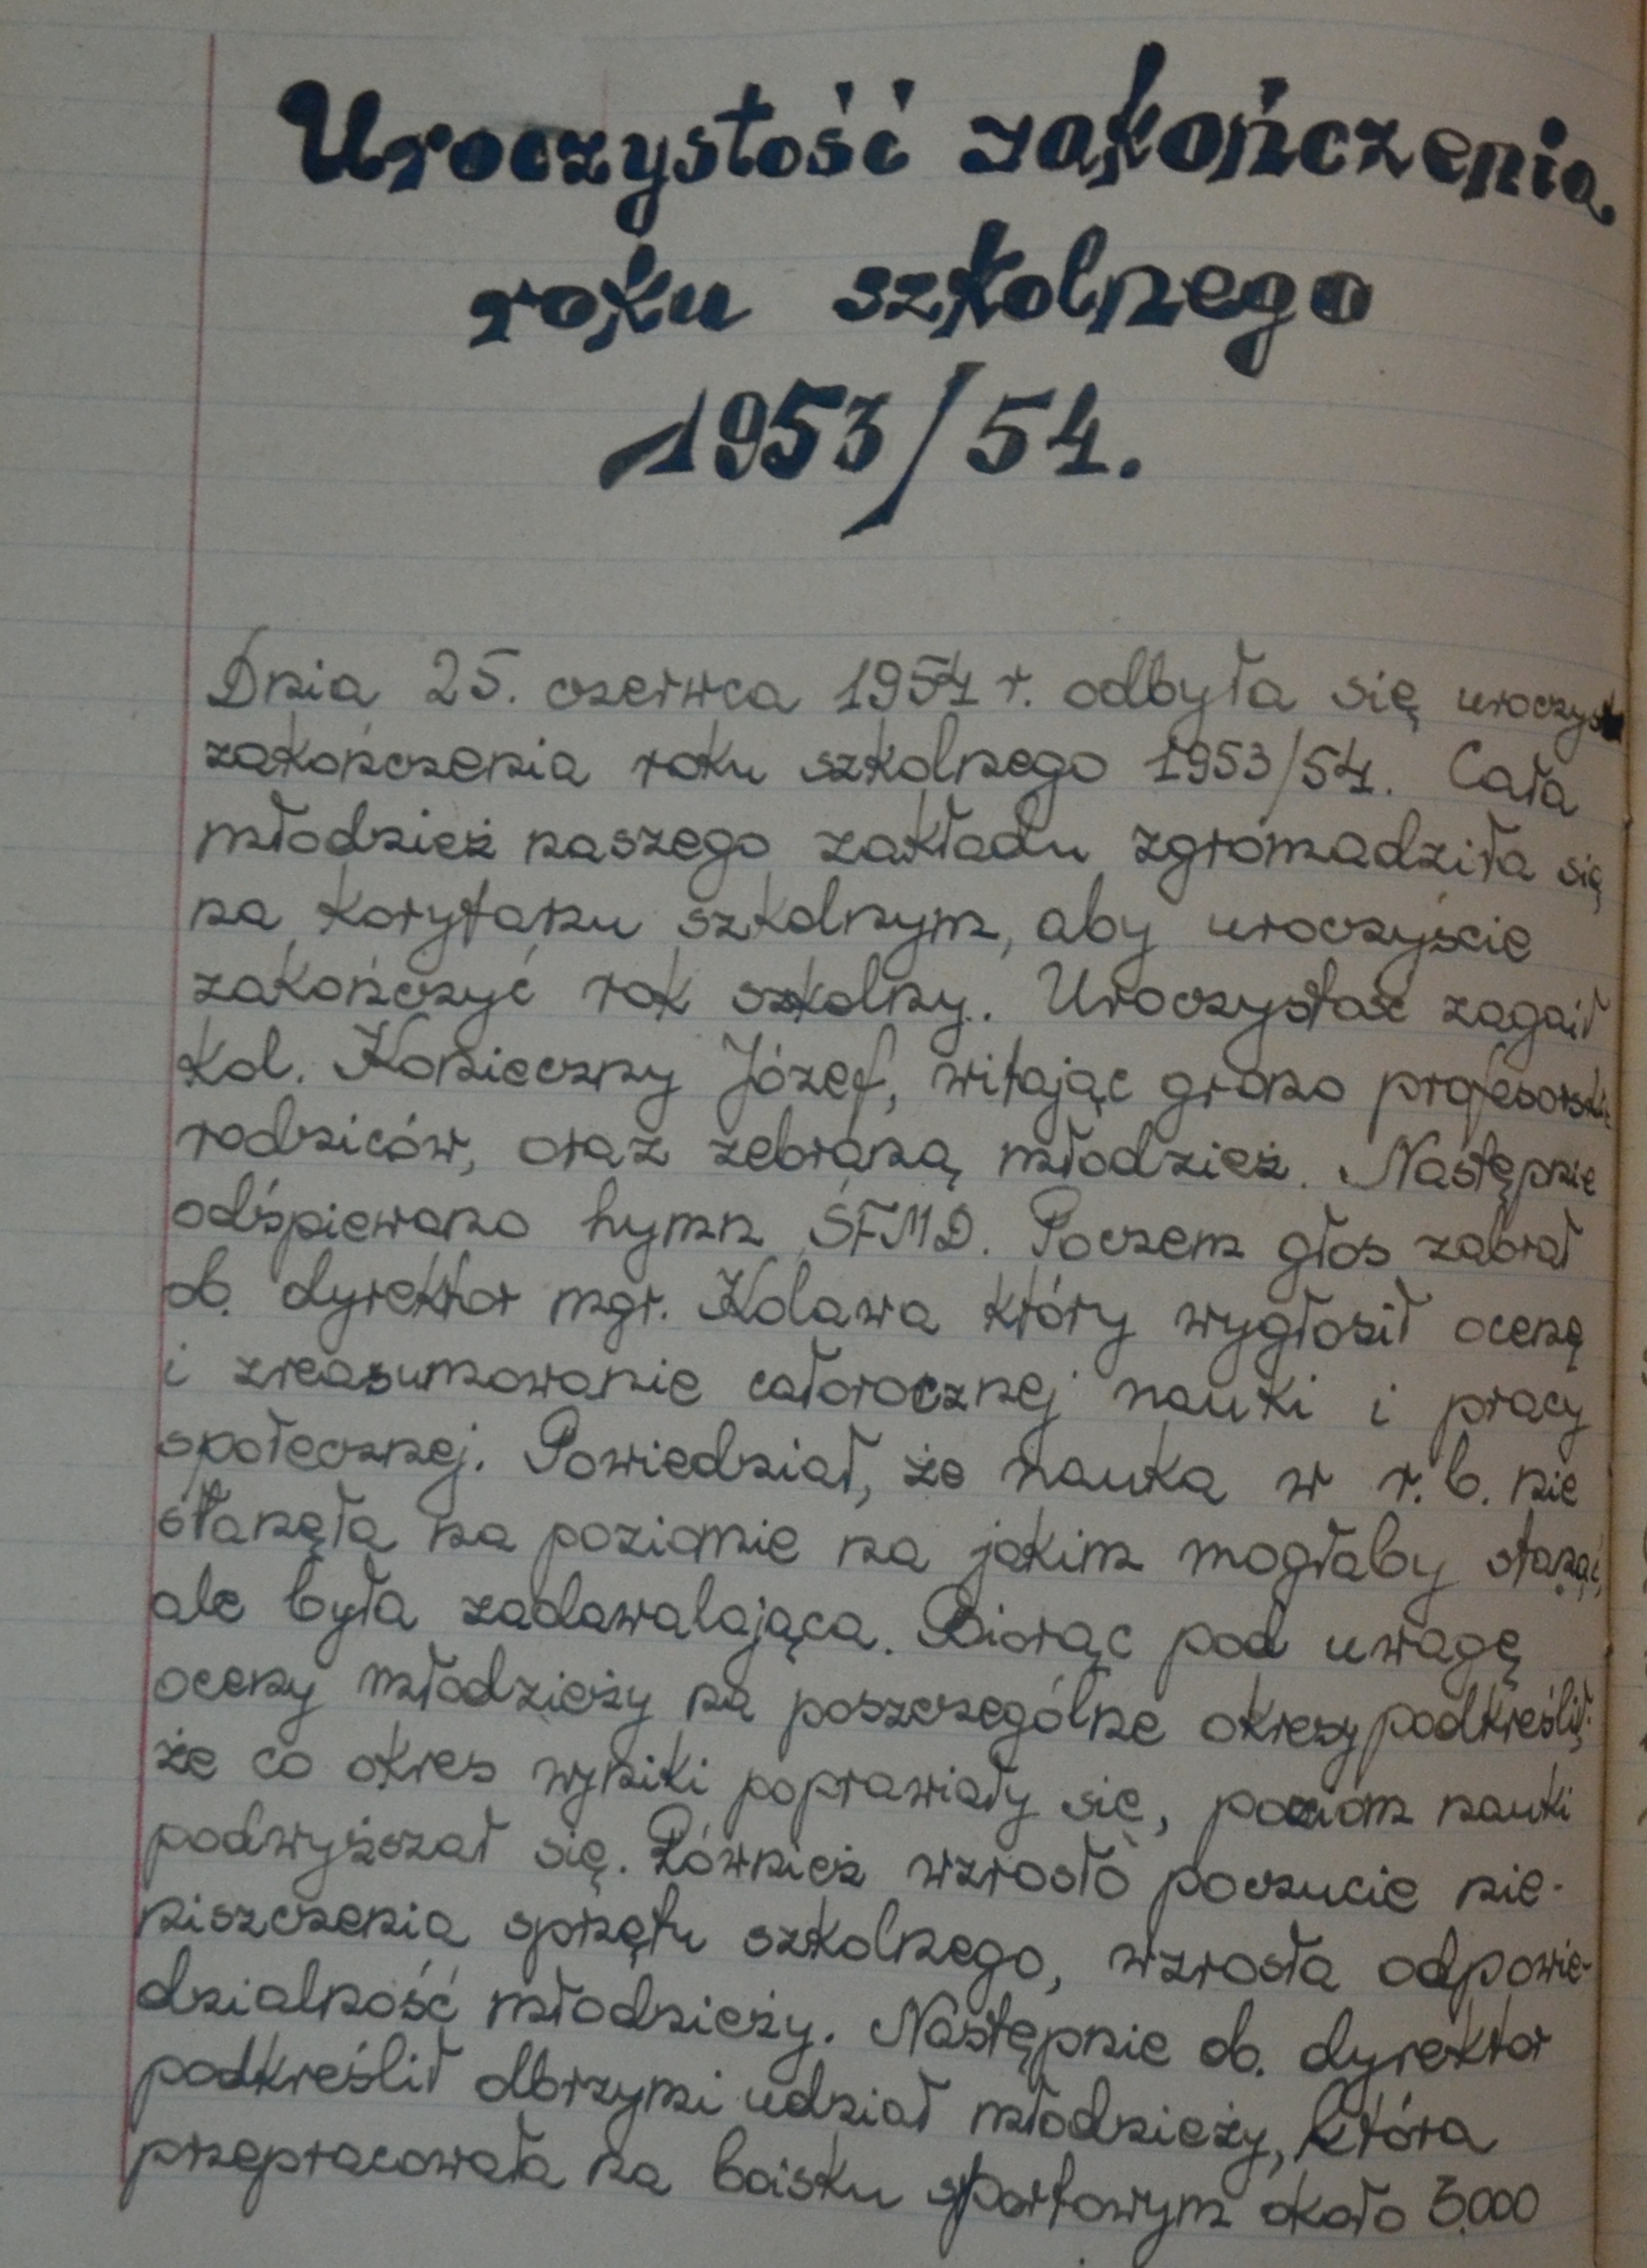 Uroczystość zakończenia
roku szkolnego
1953/54.
Dnia 25. czerwca 1954 r. odbyła się
zakończenia roku szkolnego 1953/54. Cała
młodzież naszego zakładu zgromadziła się
na korytarzu szkolnym, aby uroczyście
zakończyć rok szkolny. Uroczystość zagaił
kol. Konieczny Józef, witając grono profesorskie
rodziców, oraz zebraną młodzież. Następnie
odśpiewano hymn ŚFMD. Poczem głos zabrał
ob. dyrektor mgr. Kolawa który wygłosił ocenę
i zreasumowanie całorocznej nauki i pracy
społecznej. Powiedział, że nauka w r. b. nie
stanęła na poziomie na jakim mogłaby stanąć,
ale była zadawalająca. Biorąc pod uwagę
oceny młodzieży na poszczególne okresy podkreślił,
że co okres wyniki poprawiały się, poziom nauki
podwyższał się. Również wzrosło poczucie nie-
niszczenia sprzętu szkolnego, wzrosła odpowie-
dzialność młodzieży. Następnie ob. dyrektor
podkreślił olbrzymi udział młodzieży, która
przepracowała na boisku sportowym około 3.000